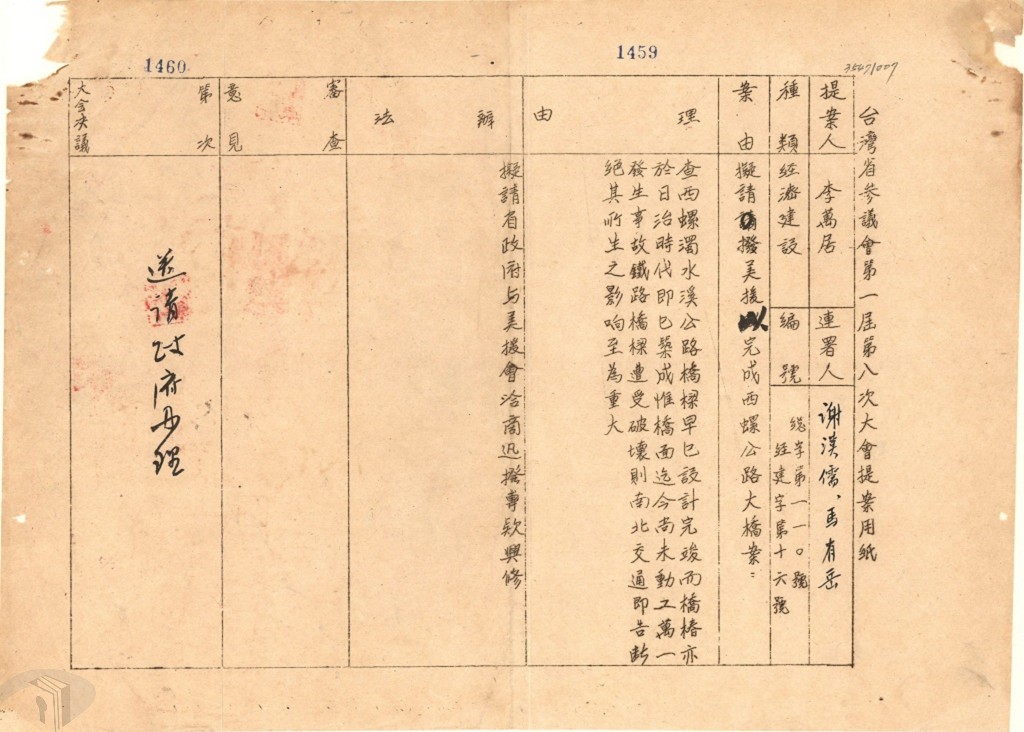 1460
1459
台灣省參議會第一屆第八次大會提案用紙
提案人
李萬居
連署人
謝漢儒、馬有岳
種類
經濟建設
編號
總字第一一〇號
經建字第十六號
案由
擬請撥美援以完成西螺公路大橋案:
理由
查西螺濁水溪公路橋樑早已設計完竣而橋樁亦
於日治時代即已築成惟橋面迄今尚未動工萬一
發生事故鐵路橋樑遭受破壞則南北交通即告斷
絕其所生之影响至為重大
辦法
擬請省政府与美援會洽商迅撥專欵興修
審查
意見
第次
大会决議
送請政府办理